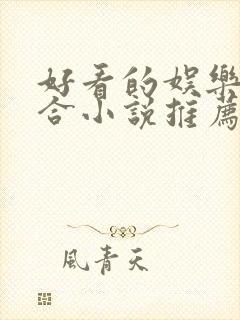 好看的娛樂
合小說推薦
風青天